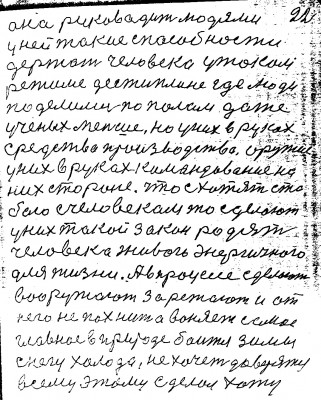 22
она руководит людями
у ней такие способности
держат человека у таком
режиме дестиплине где люди
поделились пополам даже
ученых меньше, но у них в руках
средства производства, оружие
у них в руках командование на
них стороне. что схотят сто
бело счеловекам то сделают
у них такой закон родят
человека живого энергичного
для жизни. А в процессе сделают
вооружают зарежают и от
него не пахнит а воняет самое
главное в природе боится зимы
снегу холода, не хочет доверяти
всему этому сделал хату